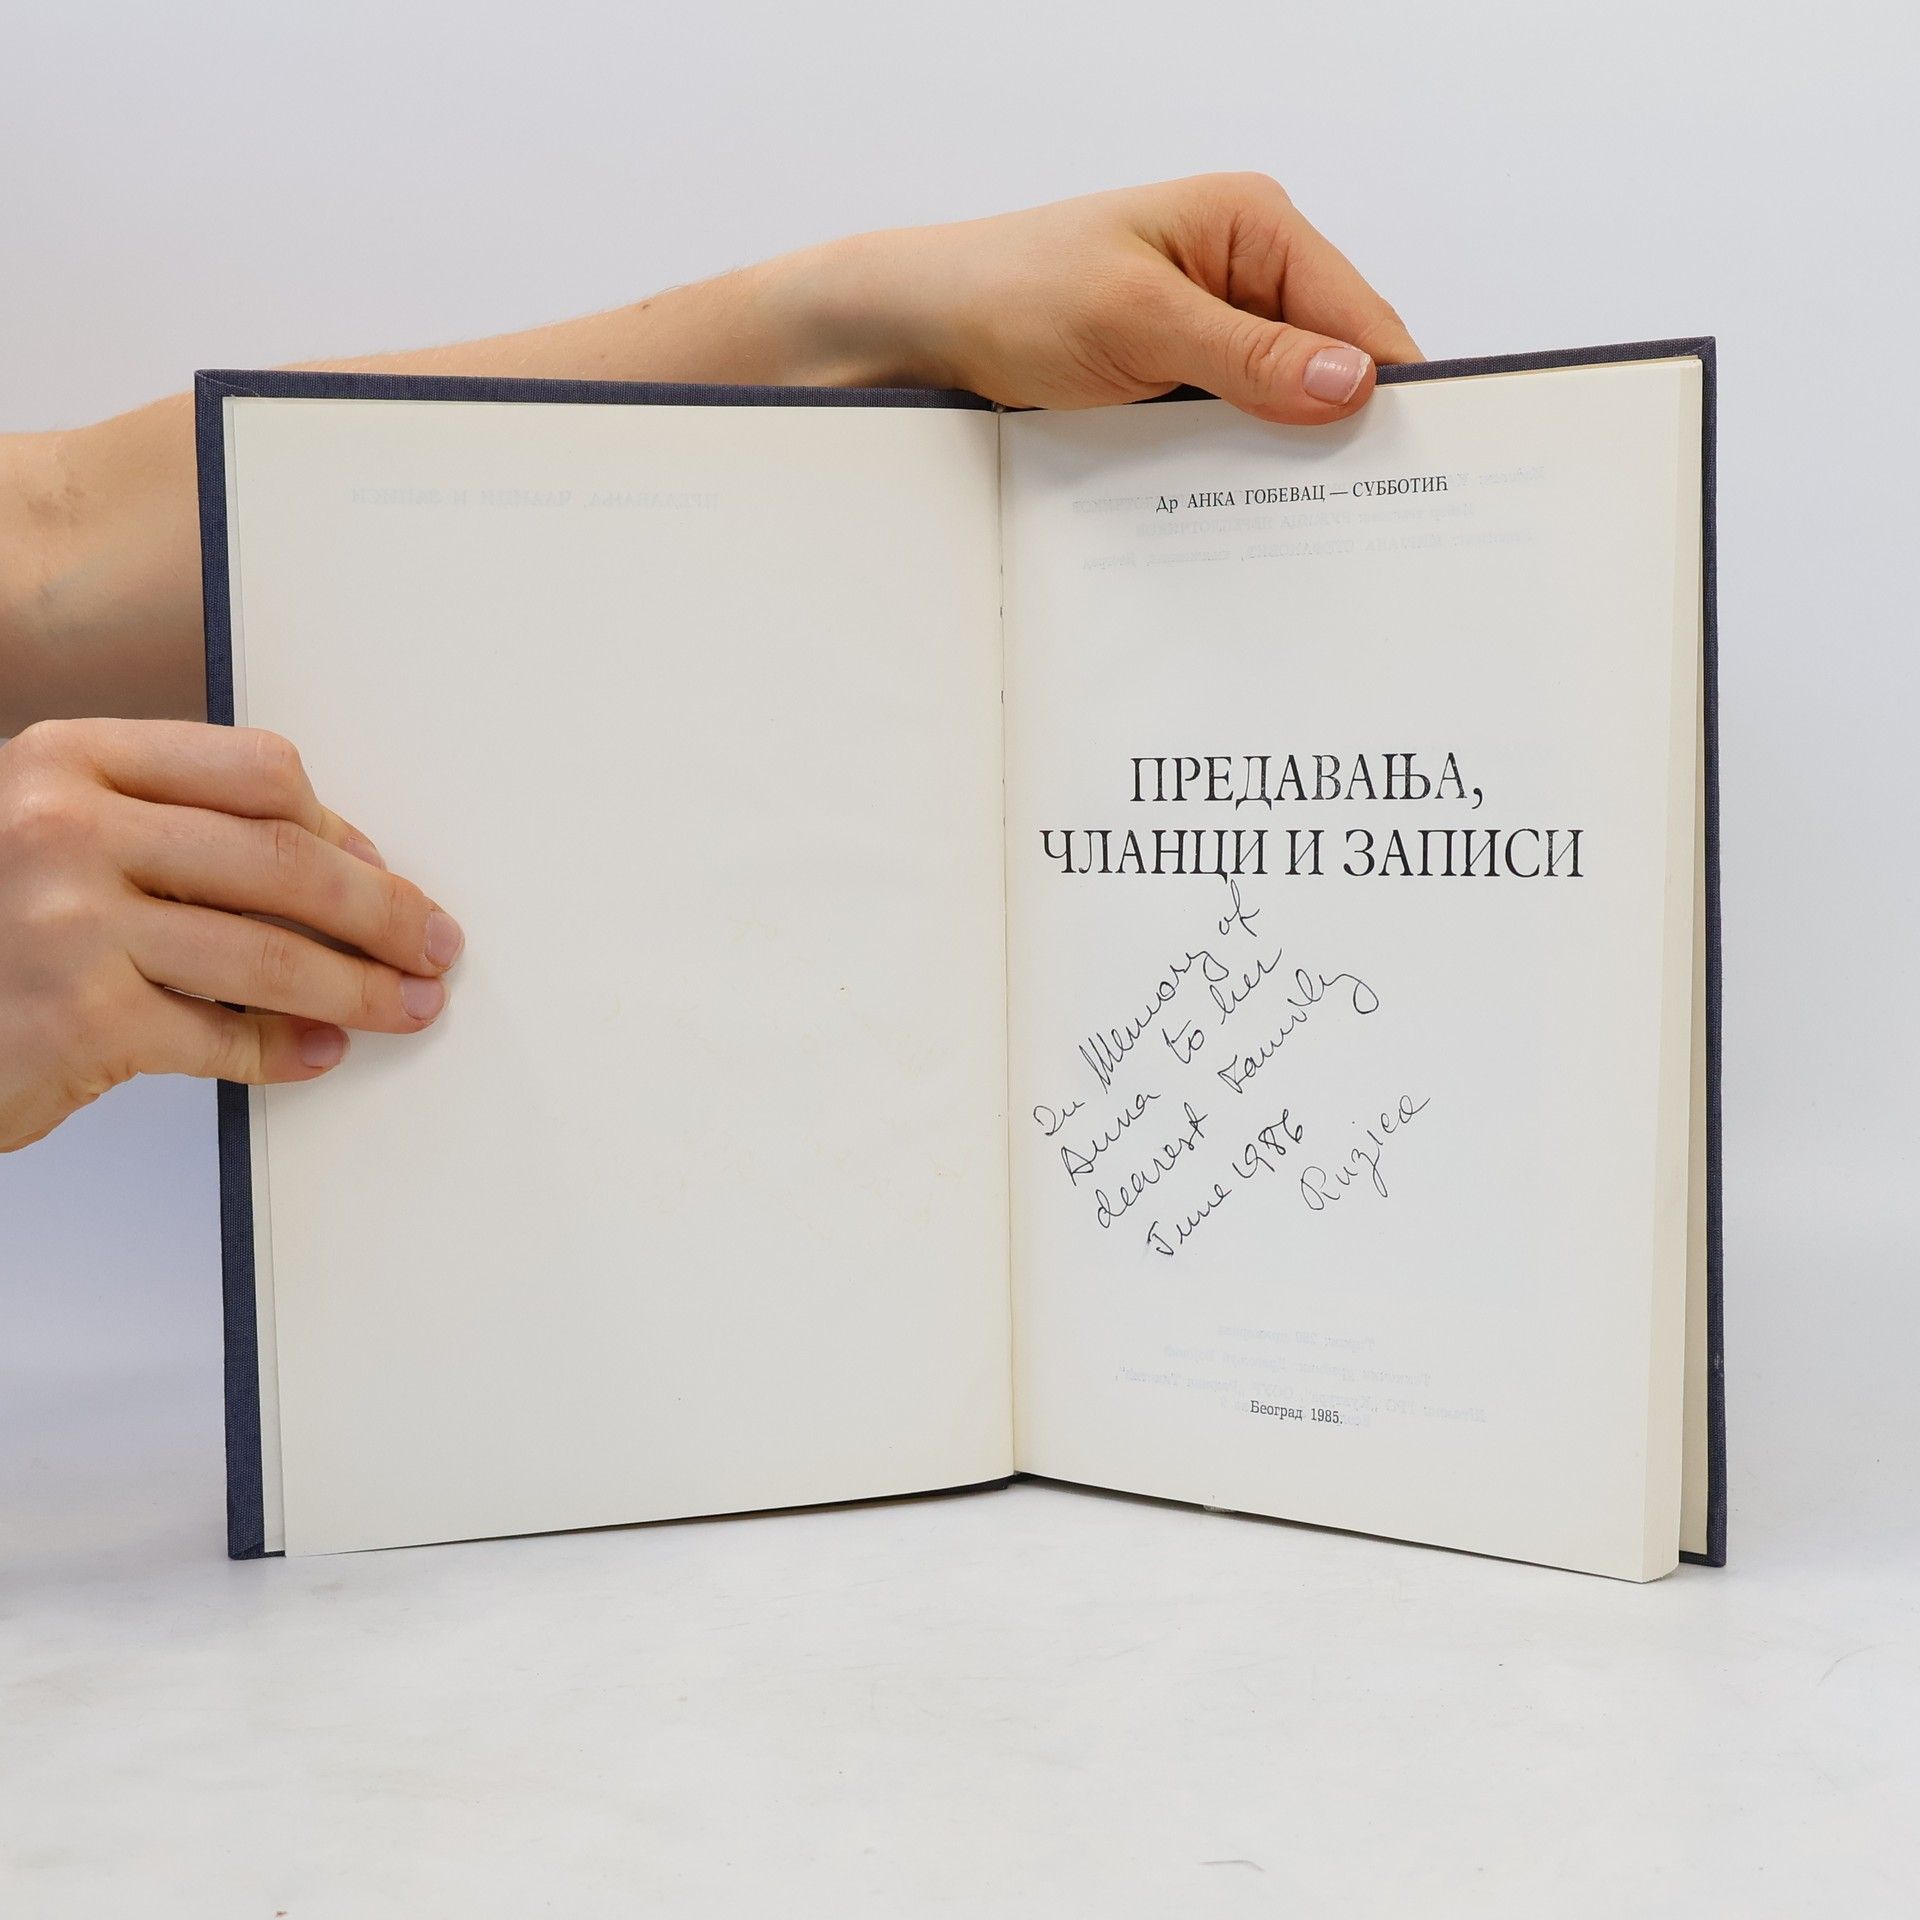 ПРЕДАВАЊА, ЧЛАНЦИ И ЗАПИСИ
Др АНКА ГОЂЕВАЦ — СУББОТИЋ
ПРЕДАВАЊА,
ЧЛАНЦИ И ЗАПИСИ
In Memory of
Anna to her
dearest Family
June 1986
Ruzica
Београд 1985.